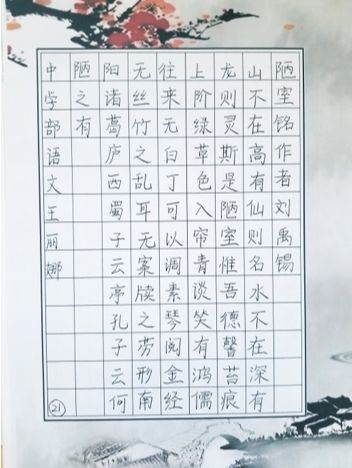 陋室铭作者刘禹锡
山不在高有仙则名水不在深有
龙则灵斯是陋室惟吾德馨苔痕
上阶绿草色入帘青谈笑有鸿儒
往来无白丁可以调素琴阅金经
无丝竹之乱耳无案牍之劳形南
阳诸葛庐西蜀子云亭孔子云何
陋之有
中学部语文王丽娜
21